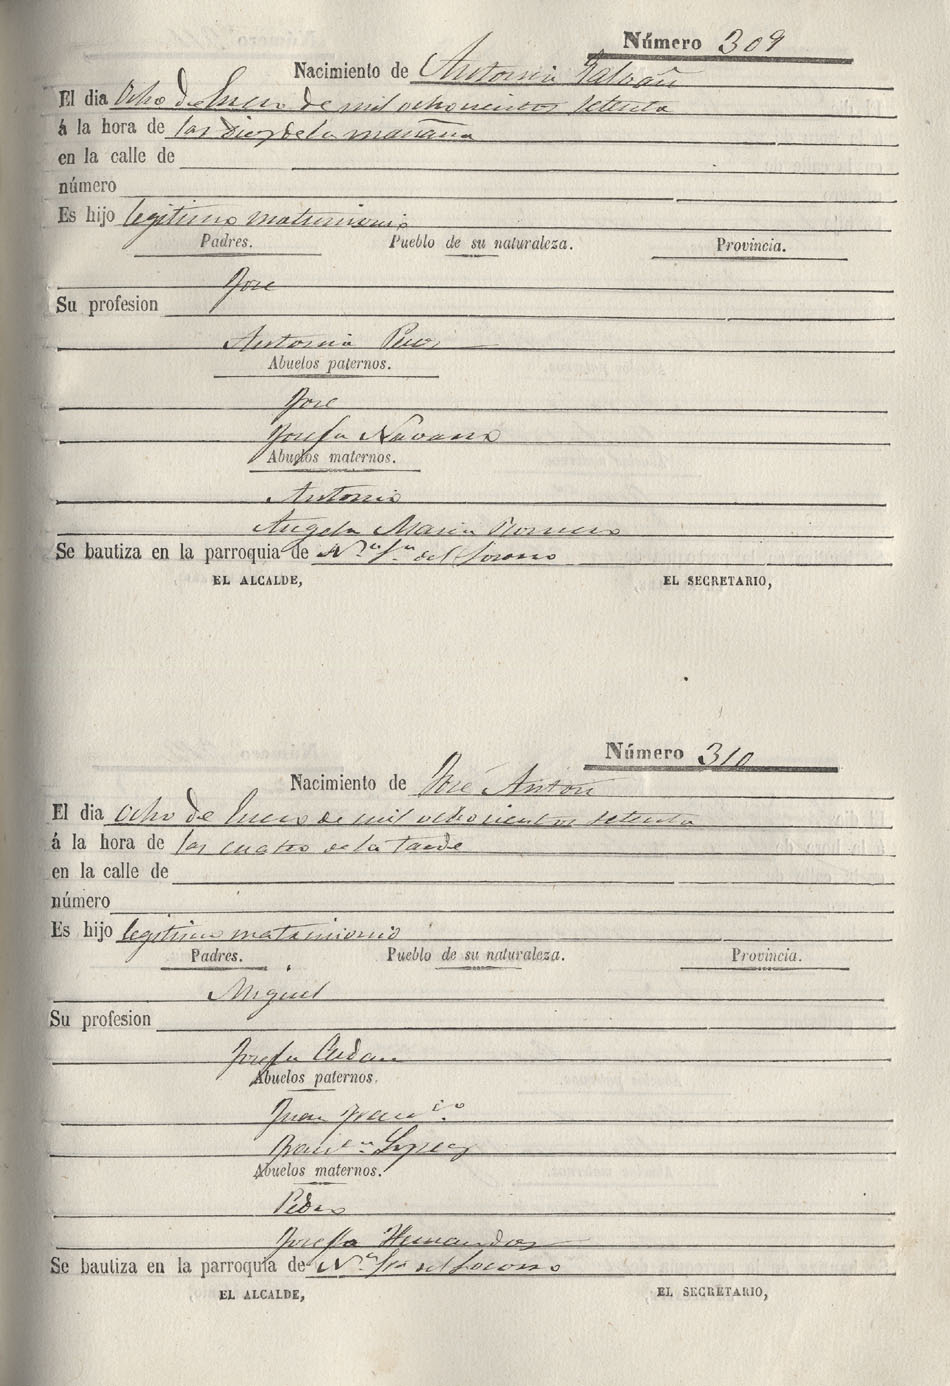 Número 309
Nacimiento de Antonia Galvañ
El dia ocho de Enero de mil ochocientos setenta
á la hora de las diez de la mañana
en la calle de
número
Es hijo legitimo matrimonio
Padres. Pueblo de su naturaleza. Provincia.
Jose
Su profesion
Antonia
Abuelos paternos.
Jose
Josefa Navarro
Abuelos maternos.
Antonio
Angela Maria Romero
Se bautiza en la parroquia de Nª. Sra. del Socorro
EL ALCALDE, EL SECRETARIO,
Número 310
Nacimiento de José Anton
El dia ocho de Enero de mil ochocientos setenta
á la hora de las cuatro de la tarde
en la calle de
número
Es hijo legitimo matrimonio
Padres. Pueblo de su naturaleza. Provincia.
Miguel
Su profesion
Josefa
Abuelos paternos.
Juan Franco.
Franca. Lopez
Abuelos maternos.
Pedro
Josefa Hernandez
Se bautiza en la parroquia de Nª. Sra. del Socorro
EL ALCALDE, EL SECRETARIO,